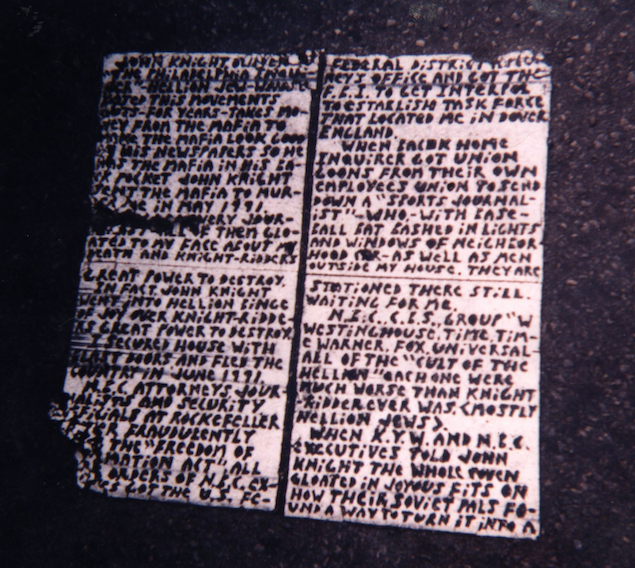 JOHN KNIGHT OWNER
THE PHILADELPHIA INQUI-
HELLION JEW
HATED THIS MOVEMENTS
FOR-YEARS-TAKES MO-
EY FROM THE MAFIA TO
THE MAFIA LOOK GOOD
HIS NEWSPAPERS
THE MAFIA IN HIS BA-
POCKET JOHN KNIGHT
ENT THE MAFIA TO MUR-
IN MAY 1991
ERY JOUR-
OF THEM GLO-
ATED TO MY FACE ABOUT MY
DEATH AND KNIGHT-RIDDERS
GREAT POWER TO DESTROY.
IN FACT JOHN KNIGHT
WENT INTO HELLION BINGE
OF JOY OVER KNIGHT-RIDDE-
RS GREAT POWER TO DESTROY
I SECURED HOUSE WITH
BLAST DOORS AND FLED THE
COUNTRY IN JUNE 1991
N.B.C. ATTORNEYS JOUR-
NALISTS AND SECURITY
OFFICIALS AT ROCKEFELLER
FRAUDULENTLY
THE "FREEDOM OF
MATION ACT" ALL
ORDERS OF N.B.C. EX-
GOT THE U.S. FE-
FEDERAL DISTRICT
NEYS OFFICE AND GOT THE
F.B.I. TO GET INTERPOL
TO ESTABLISH TASK FORCE
THAT LOCATED ME IN DOVER
ENGLAND
WHEN BACK HOME
INQUIRER GOT UNION
GOONS FROM THEIR OWN
EMPLOYEES UNION TO SEND
DOWN A "SPORTS JOURNAL-
IST" WHO, WITH BASE-
BALL BAT BASHED IN LIGHTS
AND WINDOWS OF NEIGHBOR-
HOOD CAR-AS WELL AS MEN
OUTSIDE MY HOUSE. THEY ARE
STATIONED THERE STILL.
WAITING FOR ME.
N.B.C. C.B.S. GROUP "W
WESTINGHOUSE. TIME. TIM-
E WARNER. FOX. UNIVERSAL
ALL OF THE "CULT OF THE
HELLION" EACH ONE WERE
MUCH WORSE THAN KNIGHT
RIDDER EVER WAS. <MOSTLY
HELLION JEWS>.
WHEN K.Y.W. AND N.B.C.
EXECUTIVES TOLD JOHN
KNIGHT THE WHOLE COVEN
GLOATED IN JOYOUS FITS ON
HOW THEIR SOVIET PALS FO-
UND A WAY TO TURN IT INTO A